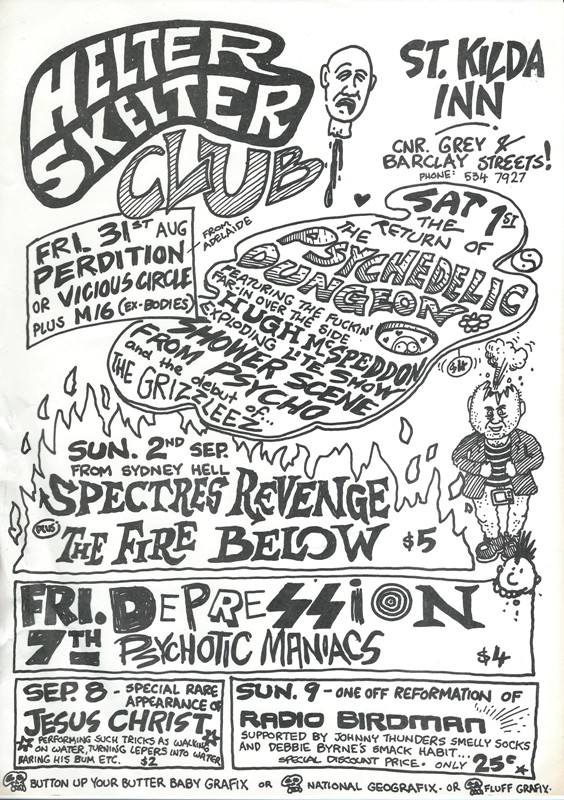 HELTER
SKELTER
CLUB
ST. KILDA
INN
CNR. GREY &
BARCLAY STREETS!
PHONE: 534 7927
FRI. 31ST AUG
PERDITION
FROM
ADELAIDE
OR VICIOUS CIRCLE
PLUS M16 (EX-BODIES)
SAT 1ST
THE
RETURN OF
THE
PSYCHEDELIC
DUNGEON
FEATURING THE FUCKIN'
FAR-IN OVER THE SIDE
HUGH McSPEDDON
EXPLODING LITE SHOW
SHOWER SCENE
FROM PSYCHO
and the debut of...
THE GRIZZLEEZ
$4
SUN. 2ND SEP.
FROM SYDNEY HELL
SPECTRES REVENGE
PLUS
THE FIRE BELOW $5
FRI. DEPRESSION
7TH PSYCHOTIC MANIACS
$4
SEP. 8 - SPECIAL RARE
APPEARANCE OF
JESUS CHRIST
PERFORMING SUCH TRICKS AS WALKING
ON WATER, TURNING LEPERS INTO WATER
BARING HIS BUM ETC. $2
SUN. 9 - ONE OFF REFORMATION OF
RADIO BIRDMAN
SUPPORTED BY JOHNNY THUNDERS SMELLY SOCKS
AND DEBBIE BYRNE'S SMACK HABIT...
SPECIAL DISCOUNT PRICE. ONLY 25¢
BUTTON UP YOUR BUTTER BABY GRAFIX OR NATIONAL GEOGRAFIX. OR FLUFF GRAFIX.